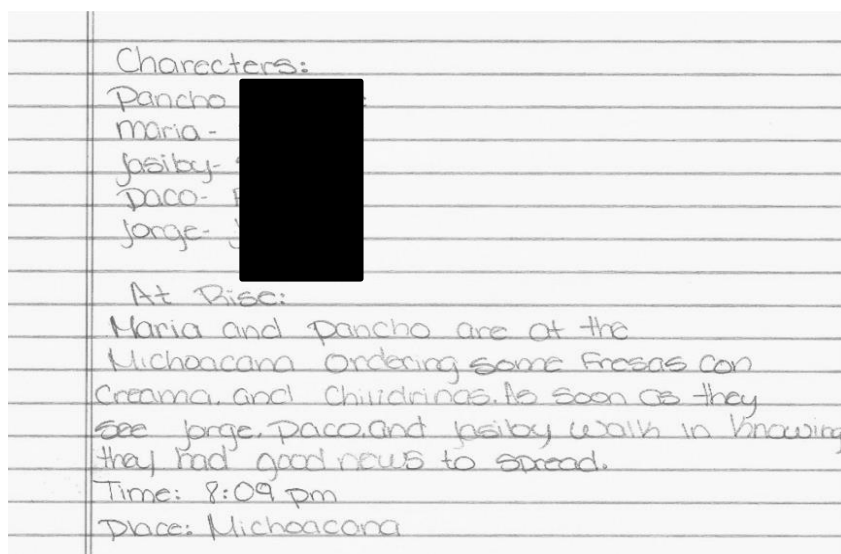 Charecters:
Pancho
maria-
Jasiby-
Paco-
Jorge-
At Rise:
Maria and Pancho are at the
Michoacana ordering some Fresas con
Creama. and Chilidrinas. As soon as they
see Jorge. Paco. and Jasiby walk in knowing
they had good news to spread.
Time: 8:09 pm
Place: Michoacana